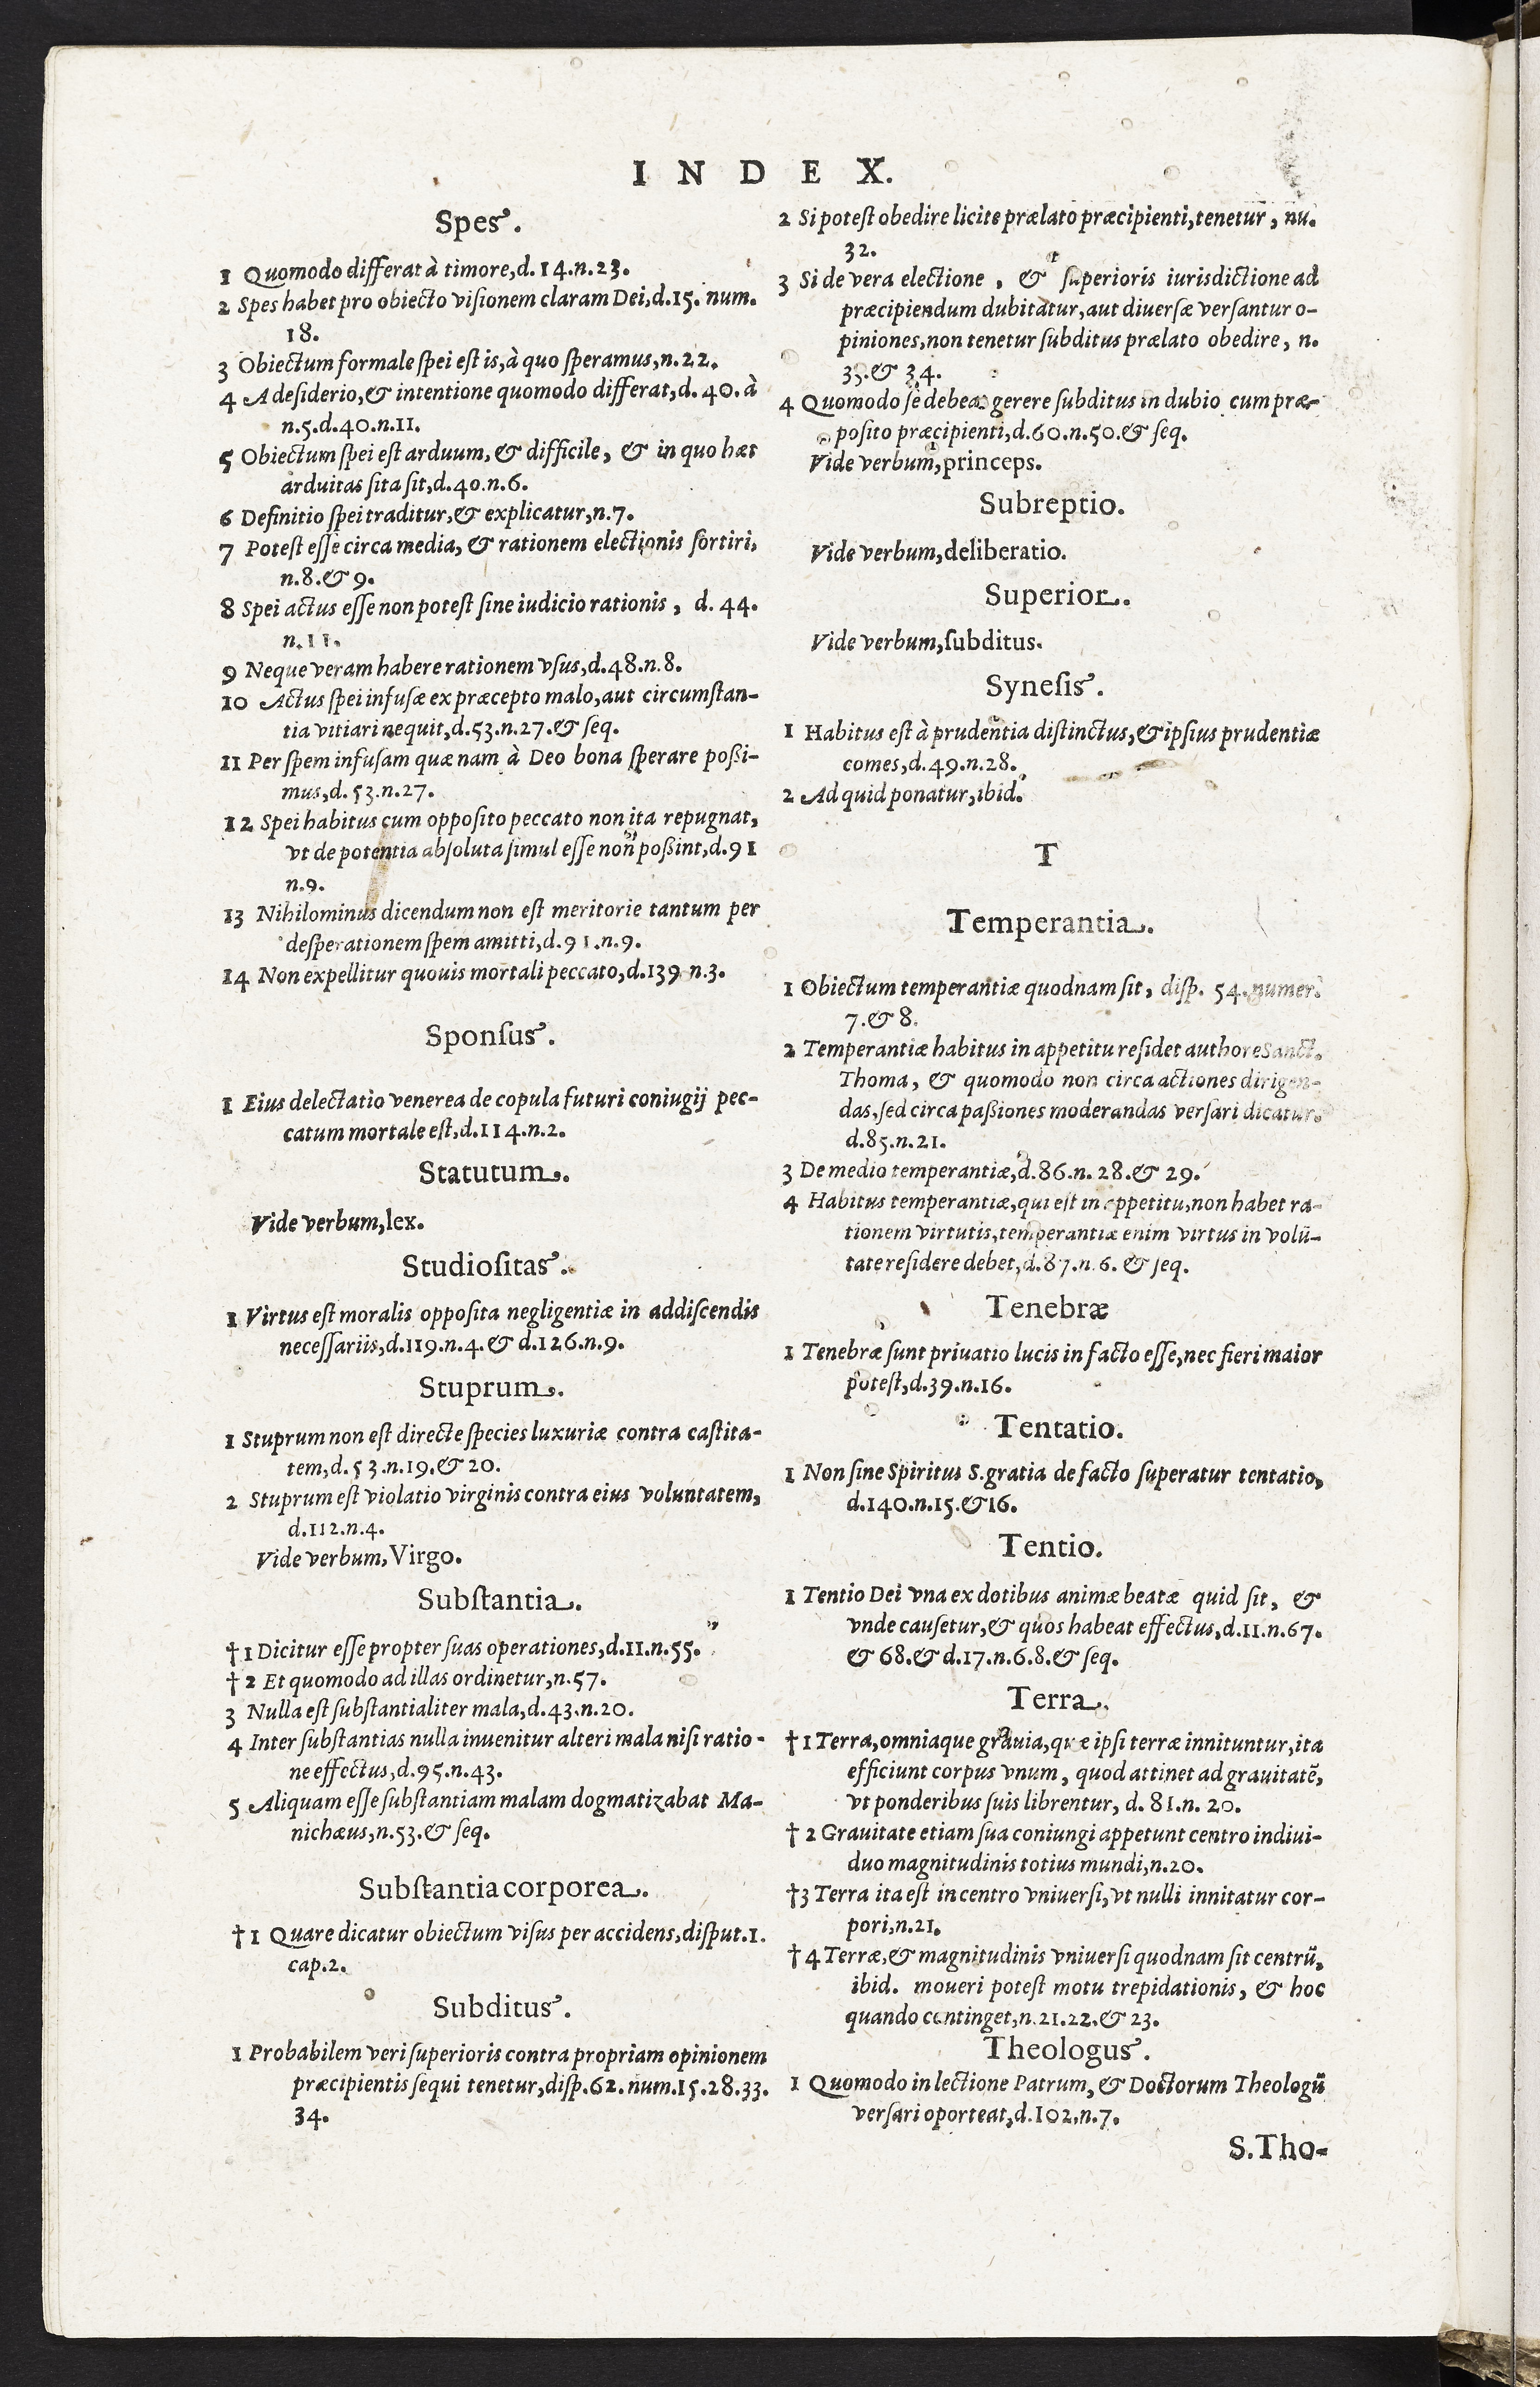 INDEX.
Spes.
1 Quomodo differat à timore,d.14.n.23.
2 Spes habet pro obiecto visionem claram Dei,d.15. num.
18.
3 Obiectum formale spei est is,à quo speramus,n.22.
4 A desiderio,& intentione quomodo differat,d.40.à
n.5.d.40.n.11.
5 Obiectum spei est arduum,& difficile, & in quo hæc
arduitas sita sit,d.40.n.6.
6 Definitio spei traditur,& explicatur,n.7.
7 Potest esse circa media,& rationem electionis sortiri,
n.8.& 9.
8 Spei actus esse non potest sine iudicio rationis, d. 44.
n.11.
9 Neque veram habere rationem vsus,d.48.n.8.
10 Actus spei infusæ ex præcepto malo,aut circumstan-
tia vitiari nequit,d.53.n.27.& seq.
11 Per spem infusam quænam à Deo bona sperare possi-
mus,d.53.n.27.
12 Spei habitus cum opposito peccato non ita repugnat,
vt de potentia absoluta simul esse non possint,d.91
n.9.
13 Nihilominus dicendum non est meritorie tantum per
desperationem spem amitti,d.91.n.9.
14 Non expellitur quouis mortali peccato,d.139 n.3.
Sponsus.
1 Eius delectatio venerea de copula futuri coniugij pec-
catum mortale est,d.114.n.2.
Statutum.
Vide verbum,lex.
Studiositas.
1 Virtus est moralis opposita negligentiæ in addiscendis
necessariis,d.119.n.4.& d.126.n.9.
Stuprum.
1 Stuprum non est directe species luxuriæ contra castita-
tem,d.53.n.19.& 20.
2 Stuprum est violatio virginis contra eius voluntatem,
d.112.n.4.
Vide verbum,Virgo.
Substantia.
†1 Dicitur esse propter suas operationes,d.11.n.55.
†2 Et quomodo ad illas ordinetur,n.57.
3 Nulla est substantialiter mala,d.43.n.20.
4 Inter substantias nulla inuenitur alteri mala nisi ratio-
ne effectus,d.95.n.43.
5 Aliquam esse substantiam malam dogmatizabat Ma-
nichæus,n.53.& seq.
Substantia corporea.
†1 Quare dicatur obiectum visus per accidens,disput.1.
cap.2.
Subditus.
1 Probabilem veri superioris contra propriam opinionem
præcipientis sequi tenetur,disp.62.num.15.28.33.
34.
2 Si potest obedire licite prælato præcipienti,tenetur, nu.
32.
3 Si de vera electione, & superioris iurisdictione ad
præcipiendum dubitatur,aut diuersæ versantur o-
piniones,non tenetur subditus prælato obedire, n.
33.& 34.
4 Quomodo se debeat gerere subditus in dubio cum præ-
posito præcipienti,d.60.n.50.& seq.
Vide verbum,princeps.
Subreptio.
Vide verbum,deliberatio.
Superior.
Vide verbum,subditus.
Synesis.
1 Habitus est à prudentia distinctus,& ipsius prudentiæ
comes,d.49.n.28.
2 Ad quid ponatur,ibid.
T
Temperantia.
1 Obiectum temperantiæ quodnam sit, disp. 54.numer.
7.& 8.
2 Temperantiæ habitus in appetitu residet authore Sanct.
Thoma, & quomodo non circa actiones dirigen-
das,sed circa passiones moderandas versari dicatur.
d.85.n.21.
3 De medio temperantiæ,d.86.n.28.& 29.
4 Habitus temperantiæ,qui est in appetitu,non habet ra-
tionem virtutis,temperantiæ enim virtus in volū-
tate residere debet,d.87.n.6. & seq.
Tenebræ
1 Tenebræ sunt priuatio lucis in facto esse,nec fieri maior
potest,d.39.n.16.
Tentatio.
1 Non sine Spiritus S.gratia de facto superatur tentatio,
d.140.n.15.&16.
Tentio.
1 Tentio Dei vna ex dotibus animæ beatæ quid sit, &
vnde causetur,& quos habeat effectus,d.11.n.67.
& 68.& d.17.n.6.8.& seq.
Terra.
†1 Terra,omniaque grauia,quæ ipsi terræ innituntur,ita
efficiunt corpus vnum, quod attinet ad grauitatē,
vt ponderibus suis librentur, d. 81.n. 20.
†2 Grauitate etiam sua coniungi appetunt centro indiui-
duo magnitudinis totius mundi,n.20.
†3 Terra ita est in centro vniuersi,vt nulli innitatur cor-
pori,n.21.
†4 Terræ,& magnitudinis vniuersi quodnam sit centrū,
ibid. moueri potest motu trepidationis, & hoc
quando continget,n.21.22.& 23.
Theologus.
1 Quomodo in lectione Patrum,& Doctorum Theologū
versari oporteat,d.102.n.7.
S.Tho-